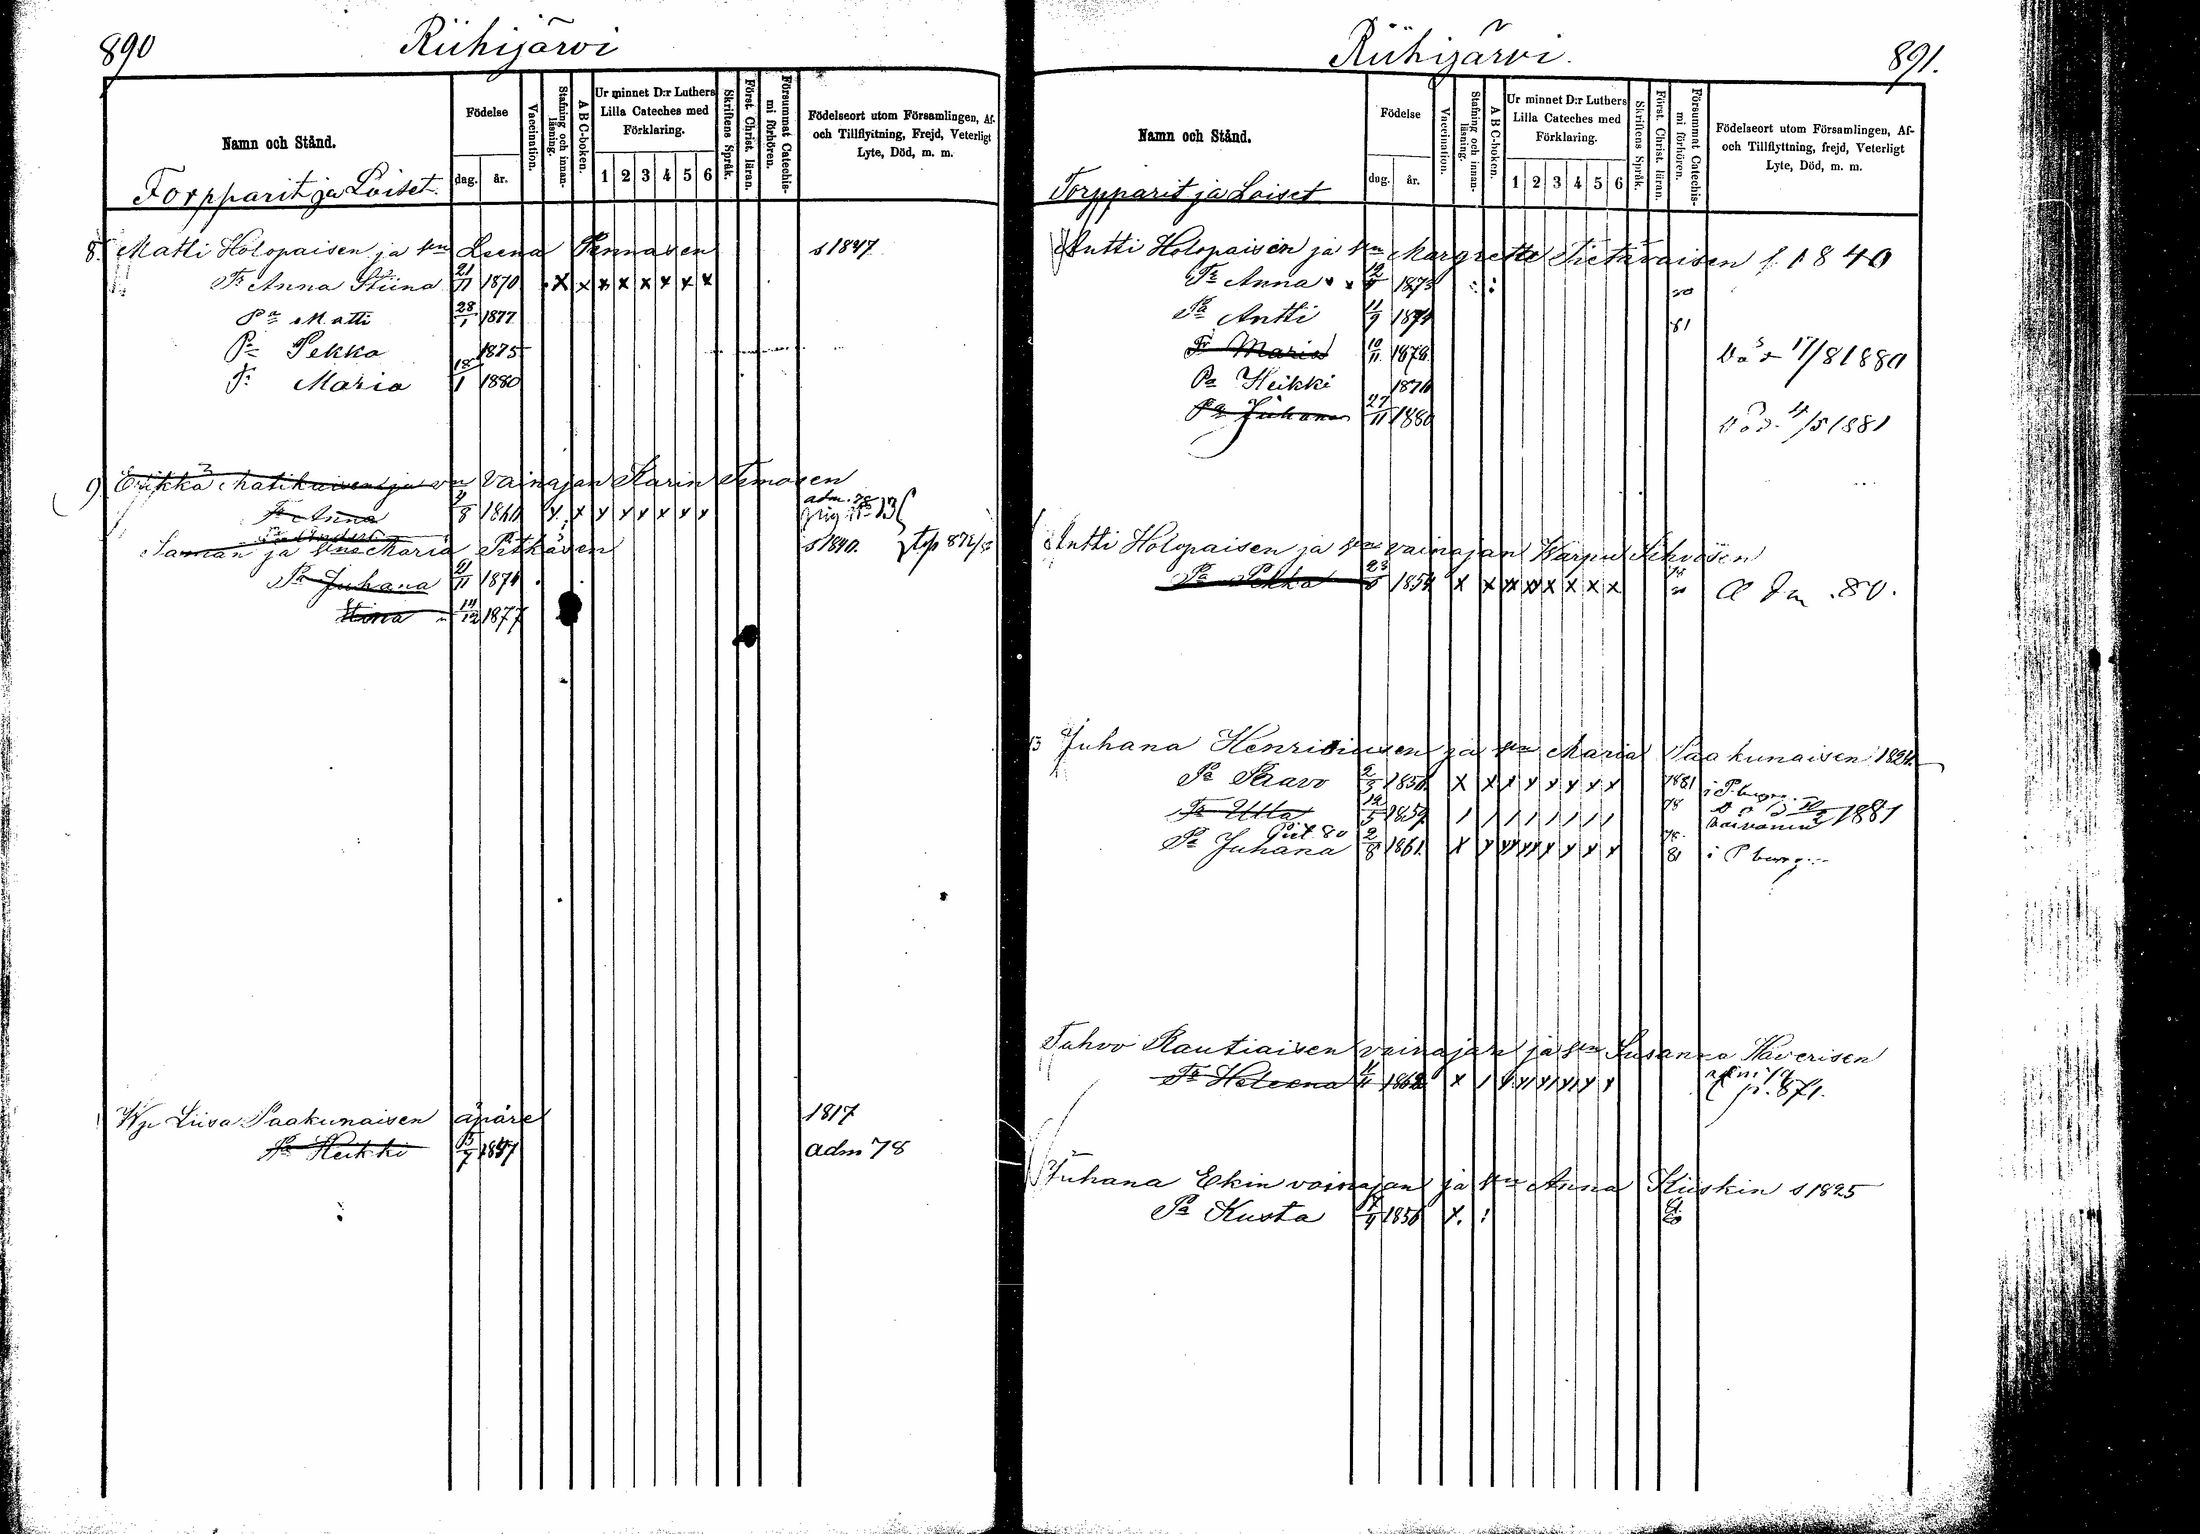 890
Riihijärvi
Namn och Stånd.
Födelse
dag.
år.
Vaccination.
Stafning och innan-läsning.
A B C-boken.
Ur minnet D:r Luthers
Lilla Cateches med
Förklaring.
1 2 3 4 5 6
Skriftens Språk.
Först. Christ. läran.
Försummat Catechis-mi förhören.
Födelseort utom Församlingen, Af-
och Tillflyttning, Frejd, Veterligt
Lyte, Död, m. m.
Torpparit ja Loiset.
8. Matti Holopaisen ja sen Leena Pennasen s 1847
Tr Anna Stiina 21/11 1870 x x x x x x x x
Pa Matti 28/1 1877
Pa Pekka 1875
Tr Maria 18/1 1880
9) Erikka Matikaisen ja vainajan Karin Temosen
Tr Anna /8 1860 x x x x x x x x adm. 78
Saman ja sen Maria Pitkäsen s 1840.
Pa Juhana 21/11 1874
Stina 14/12 1877
Wp Liisa Paakunaisen äpäre 1817
Pa Heikki 15/7 1857 adm 78
Riihijärvi.
891.
Namn och Stånd.
Födelse
dag.
år.
Vaccination.
Stafning och innan-läsning.
A B C-boken.
Ur minnet D:r Luthers
Lilla Cateches med
Förklaring.
1 2 3 4 5 6
Skriftens Språk.
Först. Christ. läran.
Försummat Catechis-mi förhören.
Födelseort utom Församlingen, Af-
och Tillflyttning, frejd, Veterligt
Lyte, Död, m. m.
Torpparit ja Loiset
Antti Holopaisen ja sen Margrette Pietaraisen s. 1840
Tr Anna 1873
Pa Antti 11/9 1874 81
Tr Maria 10/11 1878 17/8 1880
Pa Heikki 1876
Pa Juhana 27/11 1880 4/5 1881
Antti Holopaisen ja sen vainajan Warpu Sihvosen
Pa Pekka 23/5 1854 x x x x x x x x Adm. 80.
Juhana Henriciusen ja sen Maria Paakunaisen 1824.
Pa Paavo 2/3 1850 x x x x x x x x 1881 i P.burg.
Tr Ulla 12/5 1859 78 1881
Piet 80
Pa Juhana 2/8 1861 x x x x x x x x 81 i P burg.
Tahvo Rautiaisen vainajan ja sen Susanna Häverisen
Tr Heleena 1862 p. 871.
Juhana Ekin vainajan ja sen Anna Kiiskin s 1825
Pa Kusta 1856 x